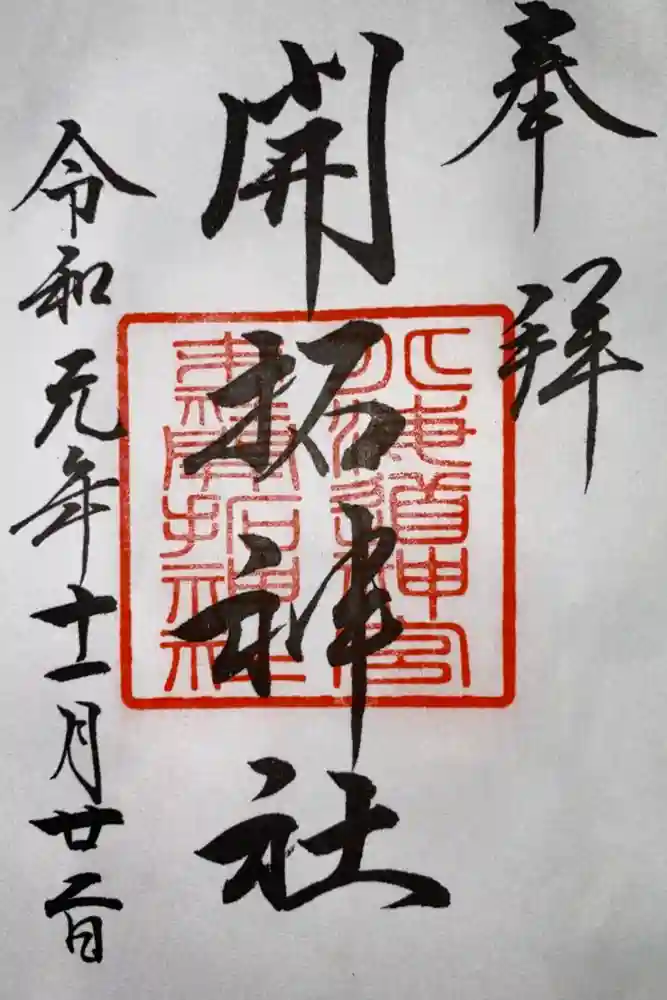 奉拝
開拓神社
令和元年十一月廿二日
北海道神宮
末社開拓神社